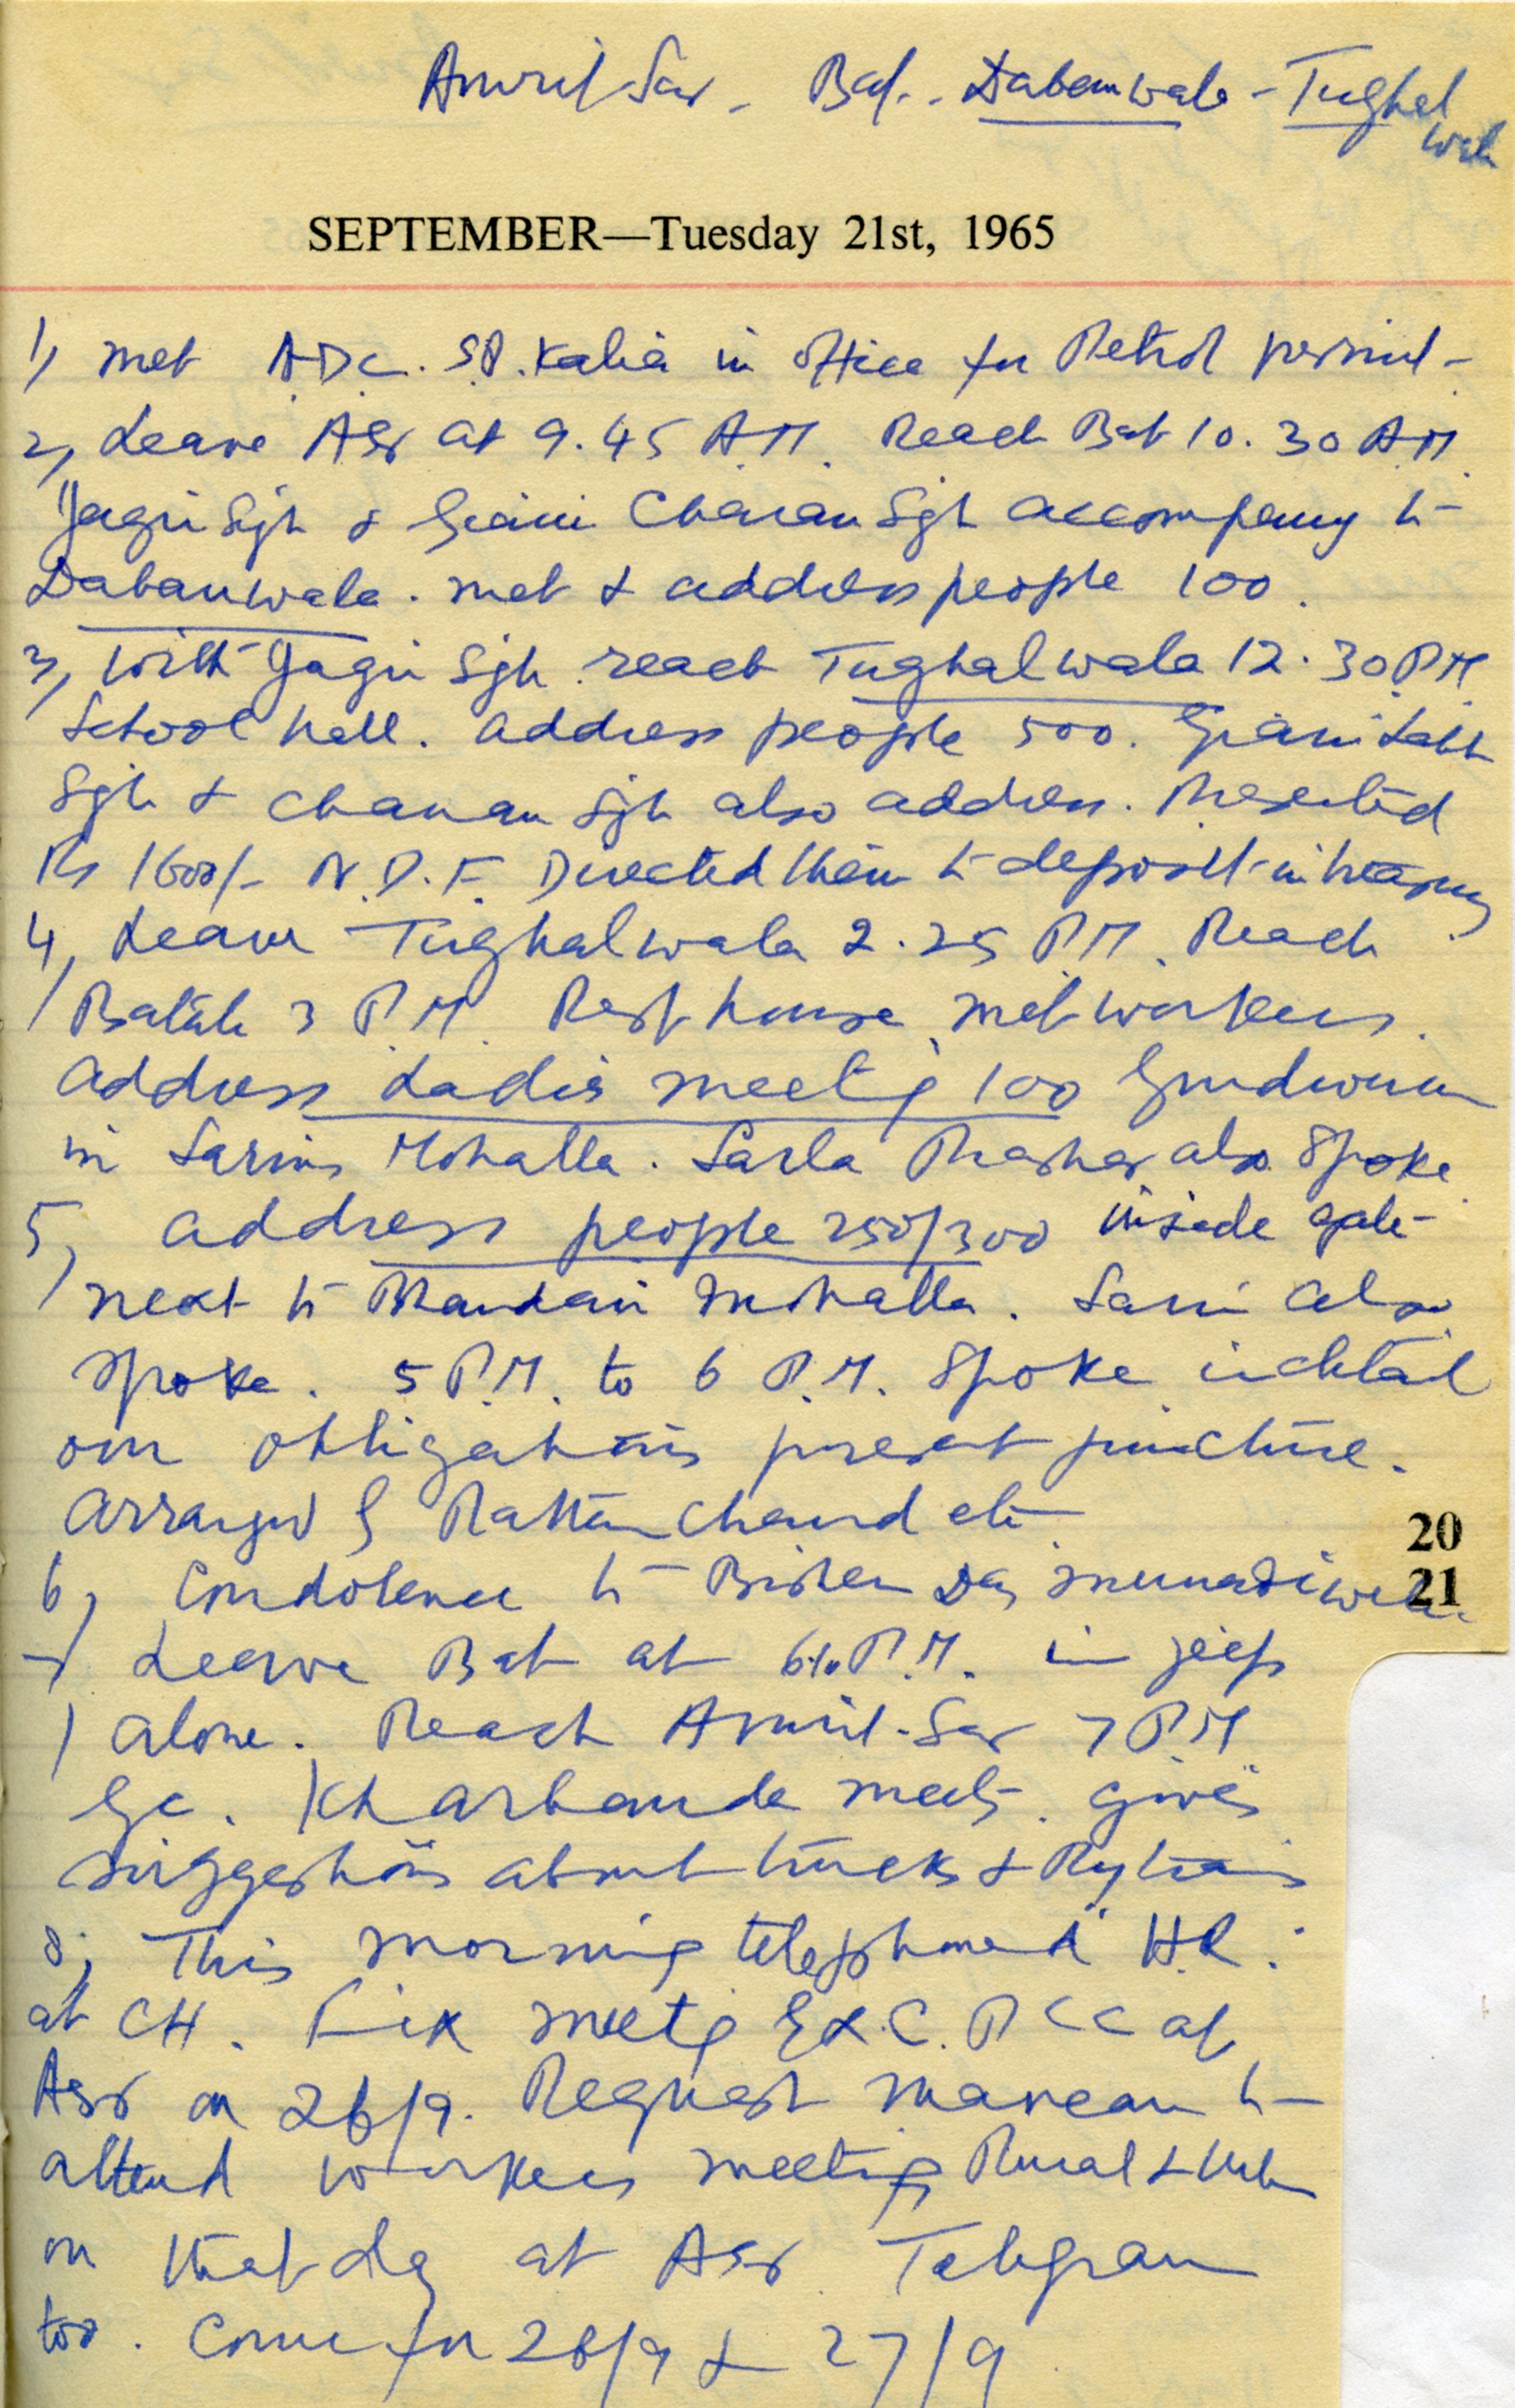 Amrit Sar - Bat. - Dabanwala - Tughal
wala
SEPTEMBER—Tuesday 21st, 1965
1, met A.D.C. S.P. Kalia in office for Petrol permit -
2, Leave ASr at 9.45 A.M. Reach Bat 10.30 A.M.
Jagir Sgh & Giani Charan Sgh accompany to
Dabanwala. met & address people 100.
3, With Jagir Sgh reach Tughalwala 12.30 P.M.
School hall. address people 500. Giani Labh
Sgh & Chanan Sgh also address. Presented
Rs 1600/- N.D.F. Directed them to deposit in treasury
4, Leave Tughalwala 2.25 P.M. Reach
Batala 3 P.M. Rest house met workers.
address Ladies meetig 100 Gurdwara
in Sarins Mohalla. Sarla Prasher also spoke
5, address people 250/300 inside gate
next to Bhandari Mohalla. Sarin also
spoke. 5 P.M. to 6 P.M. Spoke in detail
our obligations present juncture.
arranged by Rattan Chand etc
6, Condolence to Bishan Das munadiwala
20
21
7, Leave Bat at 6/10 P.M. in jeep
alone. Reach Amrit-Sar 7 P.M.
G.C. Kharbanda meets. gives
suggestions about trucks & Rly trains
8, This morning telephoned H.R.
at CH. Fix meetg Ex.C. PCC at
ASr on 26/9. Request to
attend workers meeting Rural & Urban
on that day at ASr. Telegram
too. Come for 26/9 & 27/9